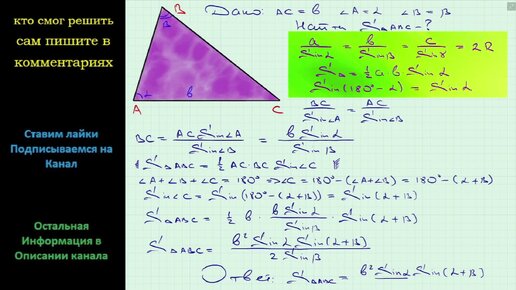 кто смог решить
сам пишите в
комментариях
Ставим лайки
Подписываемся на
Канал
Остальная
Информация в
Описании канала
B
β
α
b
A
C
Дано: AC = b ∠A = α ∠B = β
Найти S△ABC - ?
a/Sinα = b/Sinβ = c/Sinγ = 2R
S△ = ½ a b Sinα
Sin(180° - α) = Sinα
BC/Sin∠A = AC/Sin∠B
BC = AC Sin∠A/Sin∠B = b Sinα/Sinβ
S△ABC = ½ AC·BC Sin∠C
∠A + ∠B + ∠C = 180° ⇒ ∠C = 180° - (∠A + ∠B) = 180° - (α + β)
Sin∠C = Sin(180° - (α + β)) = Sin(α + β)
S△ABC = ½ b · b Sinα/Sinβ · Sin(α + β)
S△ABC = b² Sinα Sin(α + β)/2 Sinβ
Ответ: S△ABC = b² Sinα Sin(α + β)